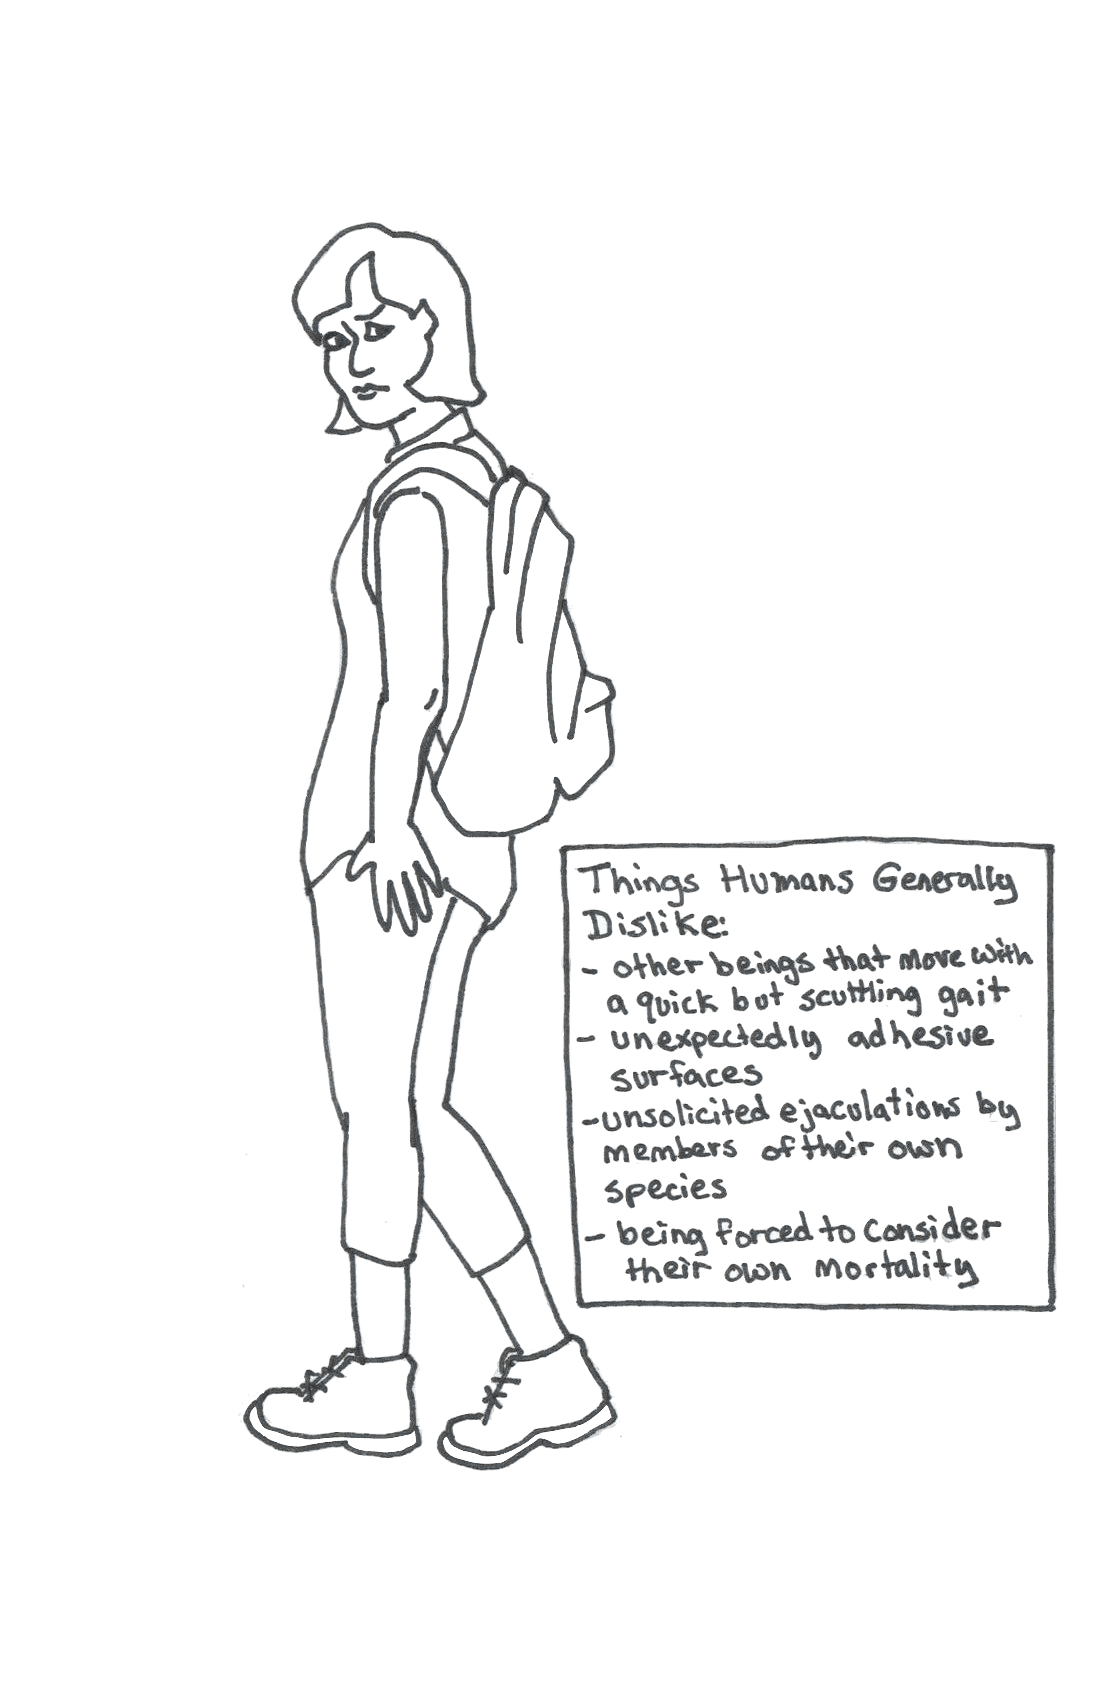 Things Humans Generally
Dislike:
- other beings that move with
a quick but scuttling gait
- unexpectedly adhesive
surfaces
- unsolicited ejaculations by
members of their own
species
- being forced to consider
their own mortality